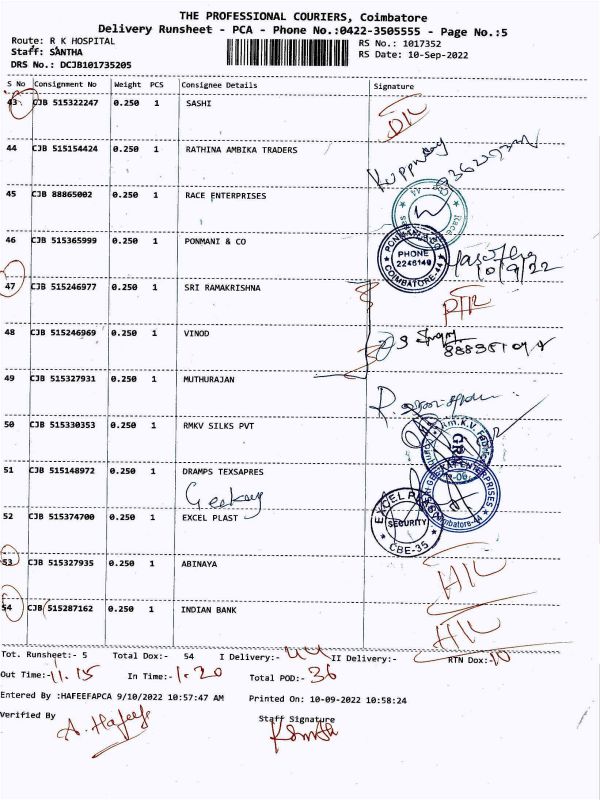 THE PROFESSIONAL COURIERS, Coimbatore
Delivery Runsheet - PCA - Phone No.:0422-3505555 - Page No.:5
Route: R K HOSPITAL
RS No.: 1017352
Staff: SANTHA
RS Date: 10-Sep-2022
DRS No.: DCJB101735205
S No Consignment No Weight PCS Consignee Details Signature
43 CJB 515322247 0.250 1 SASHI
44 CJB 515154424 0.250 1 RATHINA AMBIKA TRADERS
45 CJB 88865002 0.250 1 RACE ENTERPRISES
46 CJB 515365999 0.250 1 PONMANI & CO
PHONE
2246140
COIMBATORE-44
10/9/22
47 CJB 515246977 0.250 1 SRI RAMAKRISHNA
48 CJB 515246969 0.250 1 VINOD
49 CJB 515327931 0.250 1 MUTHURAJAN
50 CJB 515330353 0.250 1 RMKV SILKS PVT
51 CJB 515148972 0.250 1 DRAMPS TEXSAPRES
Geekay
52 CJB 515374700 0.250 1 EXCEL PLAST
EXCEL PLAST
SECURITY
CBE-35
53 CJB 515327935 0.250 1 ABINAYA
54 CJB 515287162 0.250 1 INDIAN BANK
Tot. Runsheet:- 5 Total Dox:- 54 I Delivery:- 44 II Delivery:- RTN Dox:-10
Out Time:-11.15 In Time:-1.20 Total POD:- 36
Entered By :HAFEEFAPCA 9/10/2022 10:57:47 AM Printed On: 10-09-2022 10:58:24
Verified By
Staff Signature
A. Hafeefa